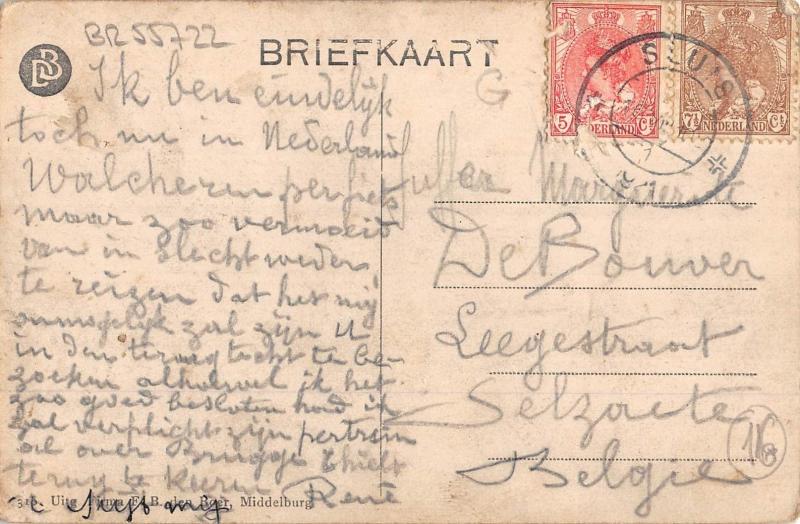 BR55722
BRIEFKAART
DB
G
5 Ct NEDERLAND
7½ Ct NEDERLAND
SLUIS
Ik ben eindelijk
toch nu in Nederland
Walcheren
maar zoo vermoeid
van in slecht weder
te reizen dat het mij
onmogelijk zal zijn U
in den terugtocht te be-
zoeken alhoewel ik het
zoo goed besloten had ik
zal verplicht zijn per tram
al over Brugge & Thielt
terug te keeren René
Marguerite
De Bouver
Leegestraat
Selzaete
Belgie
116
318. Uitg. Firma F. B. den Boer, Middelburg